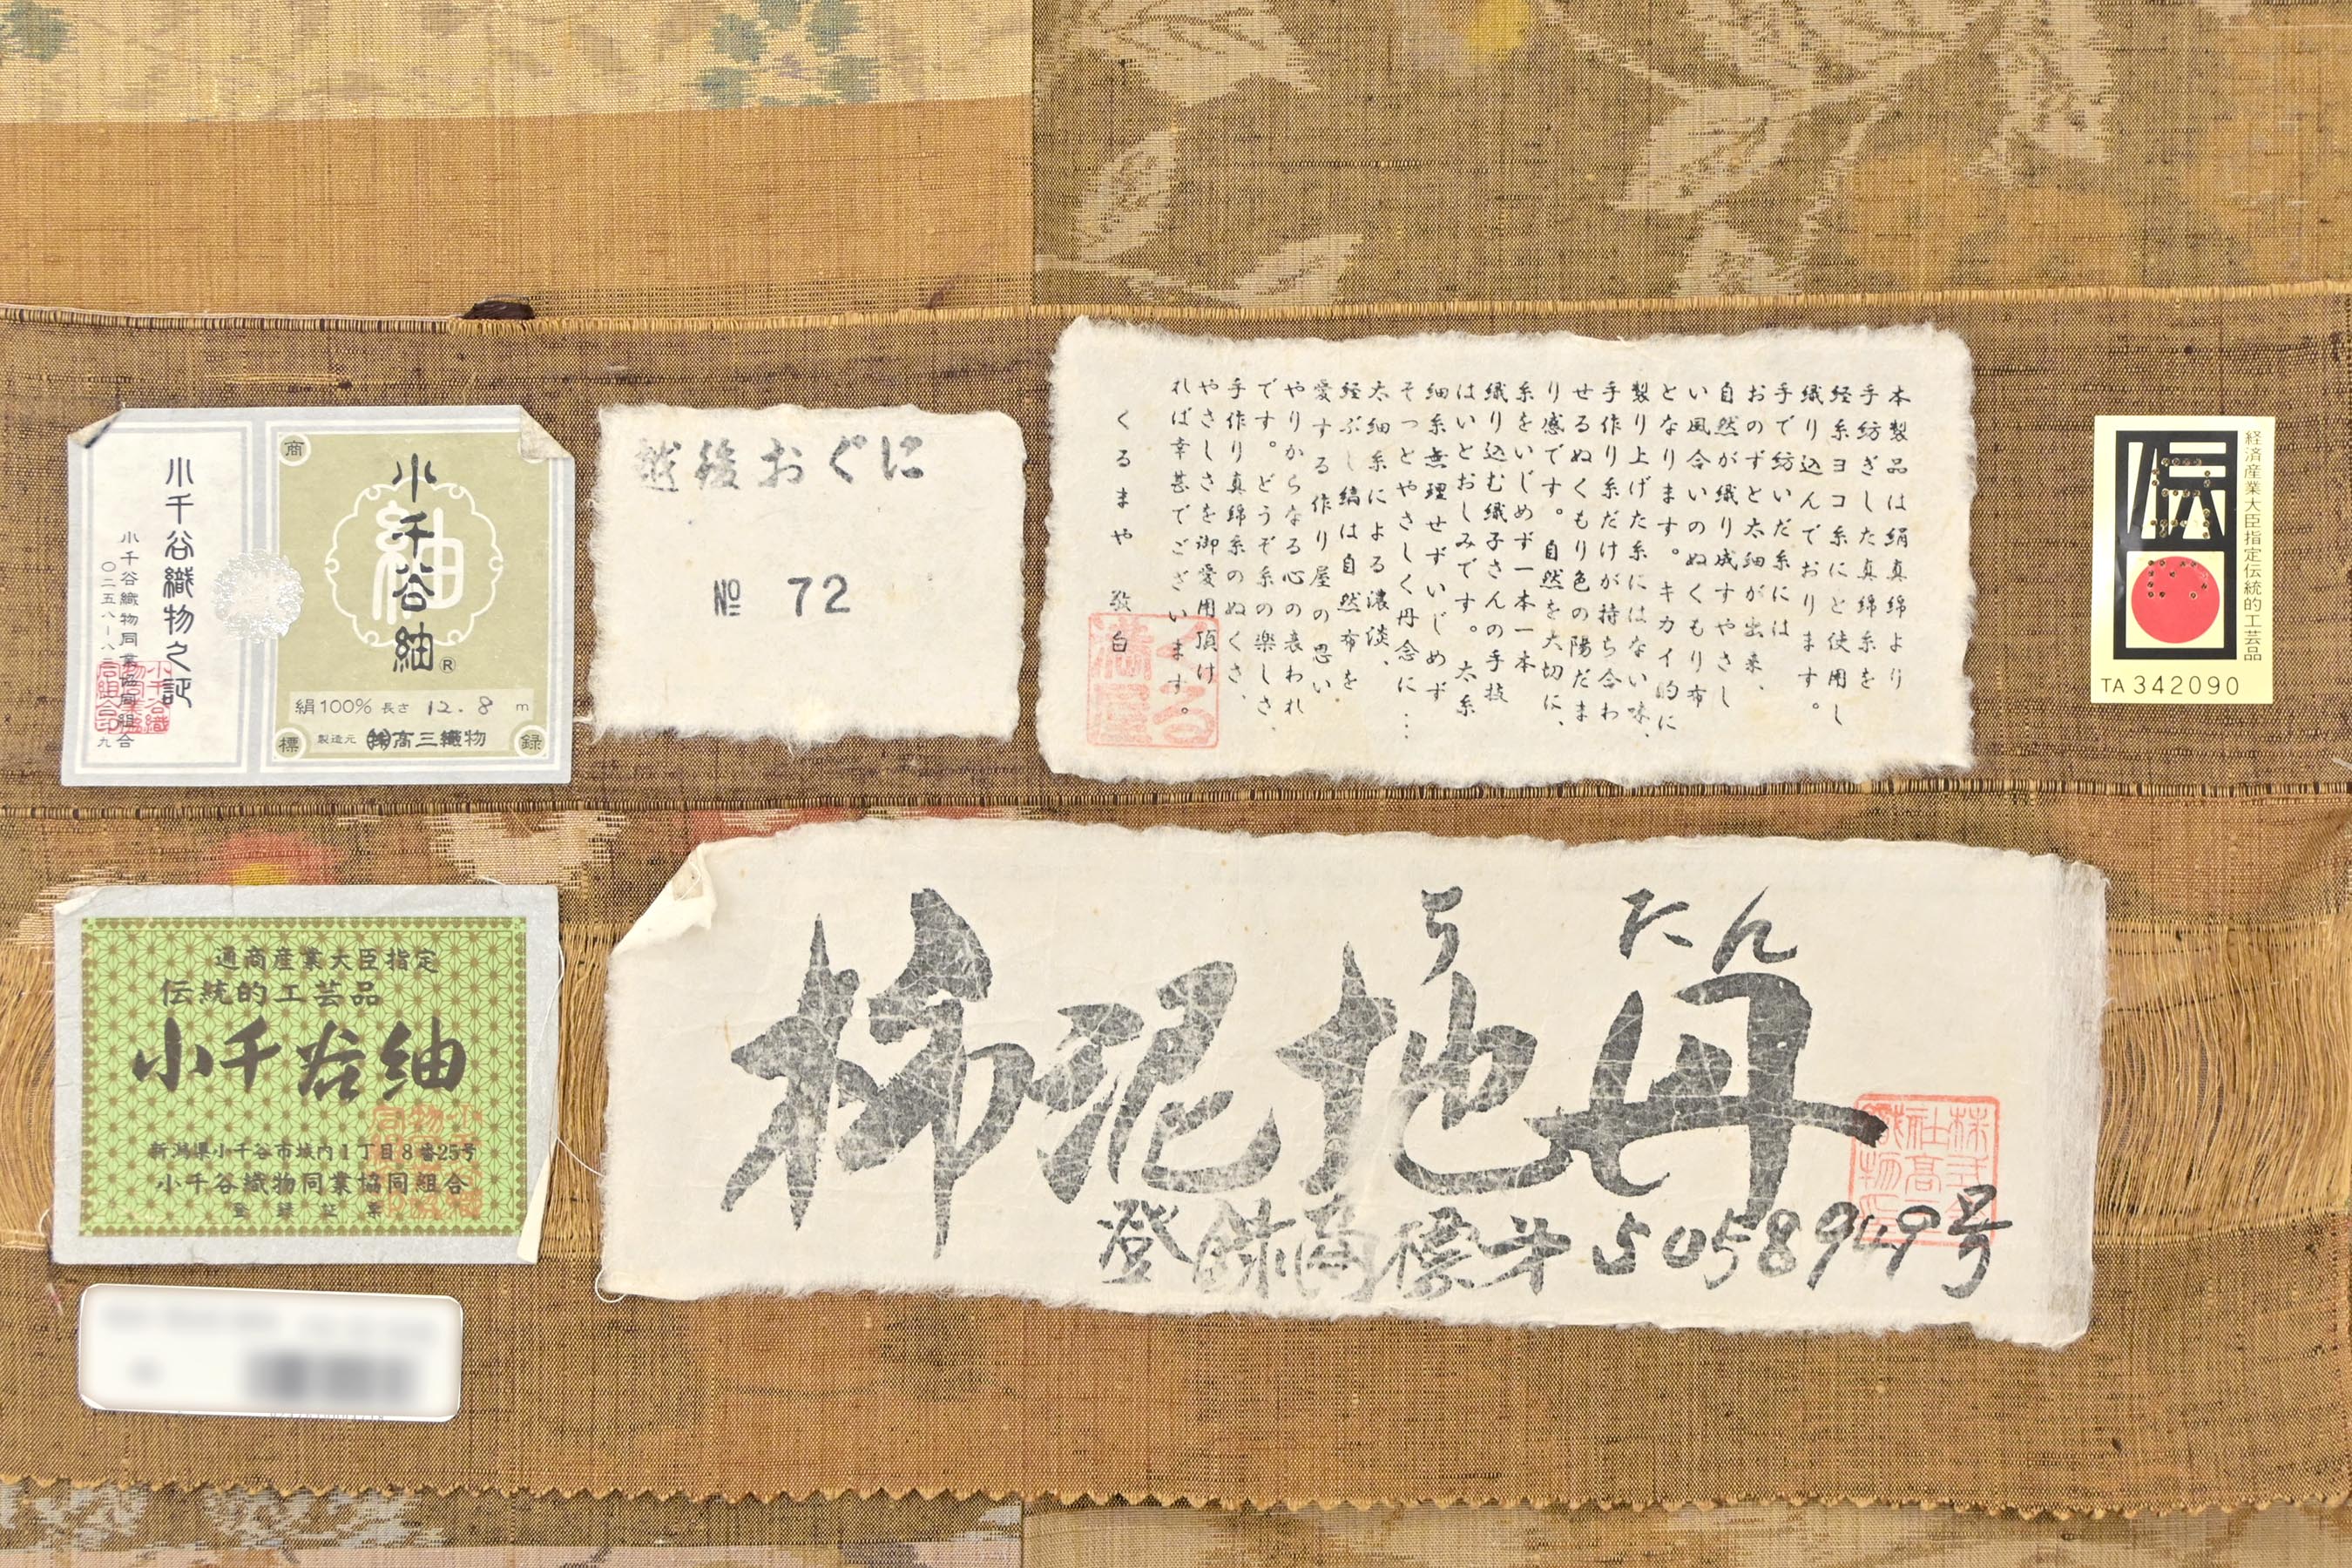 小千谷織物之証
小千谷織物同業協同組合
商
標
登
録
小千谷紬®
紬
絹100% 長さ 12.8 m
製造元 ㈱高三織物
越後おぐに
№ 72
本製品は絹真綿より
手紡ぎした真綿糸を
経糸ヨコ糸にと使用し
織り込んでおります。
手で紡いだ糸には
おのずと太細が出来、
自然が織り成すやさし
い風合いのぬくもり布
となります。キカイ的に
製り上げた糸にはない味、
手作り糸だけが持ち合わ
せるぬくもり色の陽だま
り感です。自然を大切に、
糸をいじめず一本一本
織り込む織子さんの手技
はいとおしみです。太糸
細糸無理せずいじめず
そっとやさしく丹念に…
太細糸による濃淡、
経ぶし縞は自然布を
愛する作り屋の思い
やりからなる心の表われ
です。どうぞ糸の楽しさ、
手作り真綿糸のぬくさ、
やさしさを御愛用頂け
れば幸甚でございます。
くるまや 敬白
伝
経済産業大臣指定伝統的工芸品
TA 342090
通商産業大臣指定
伝統的工芸品
小千谷紬
新潟県小千谷市城内1丁目8番25号
小千谷織物同業協同組合
登録証票
ち たん
柿泥地丹
登録商標第5058949号